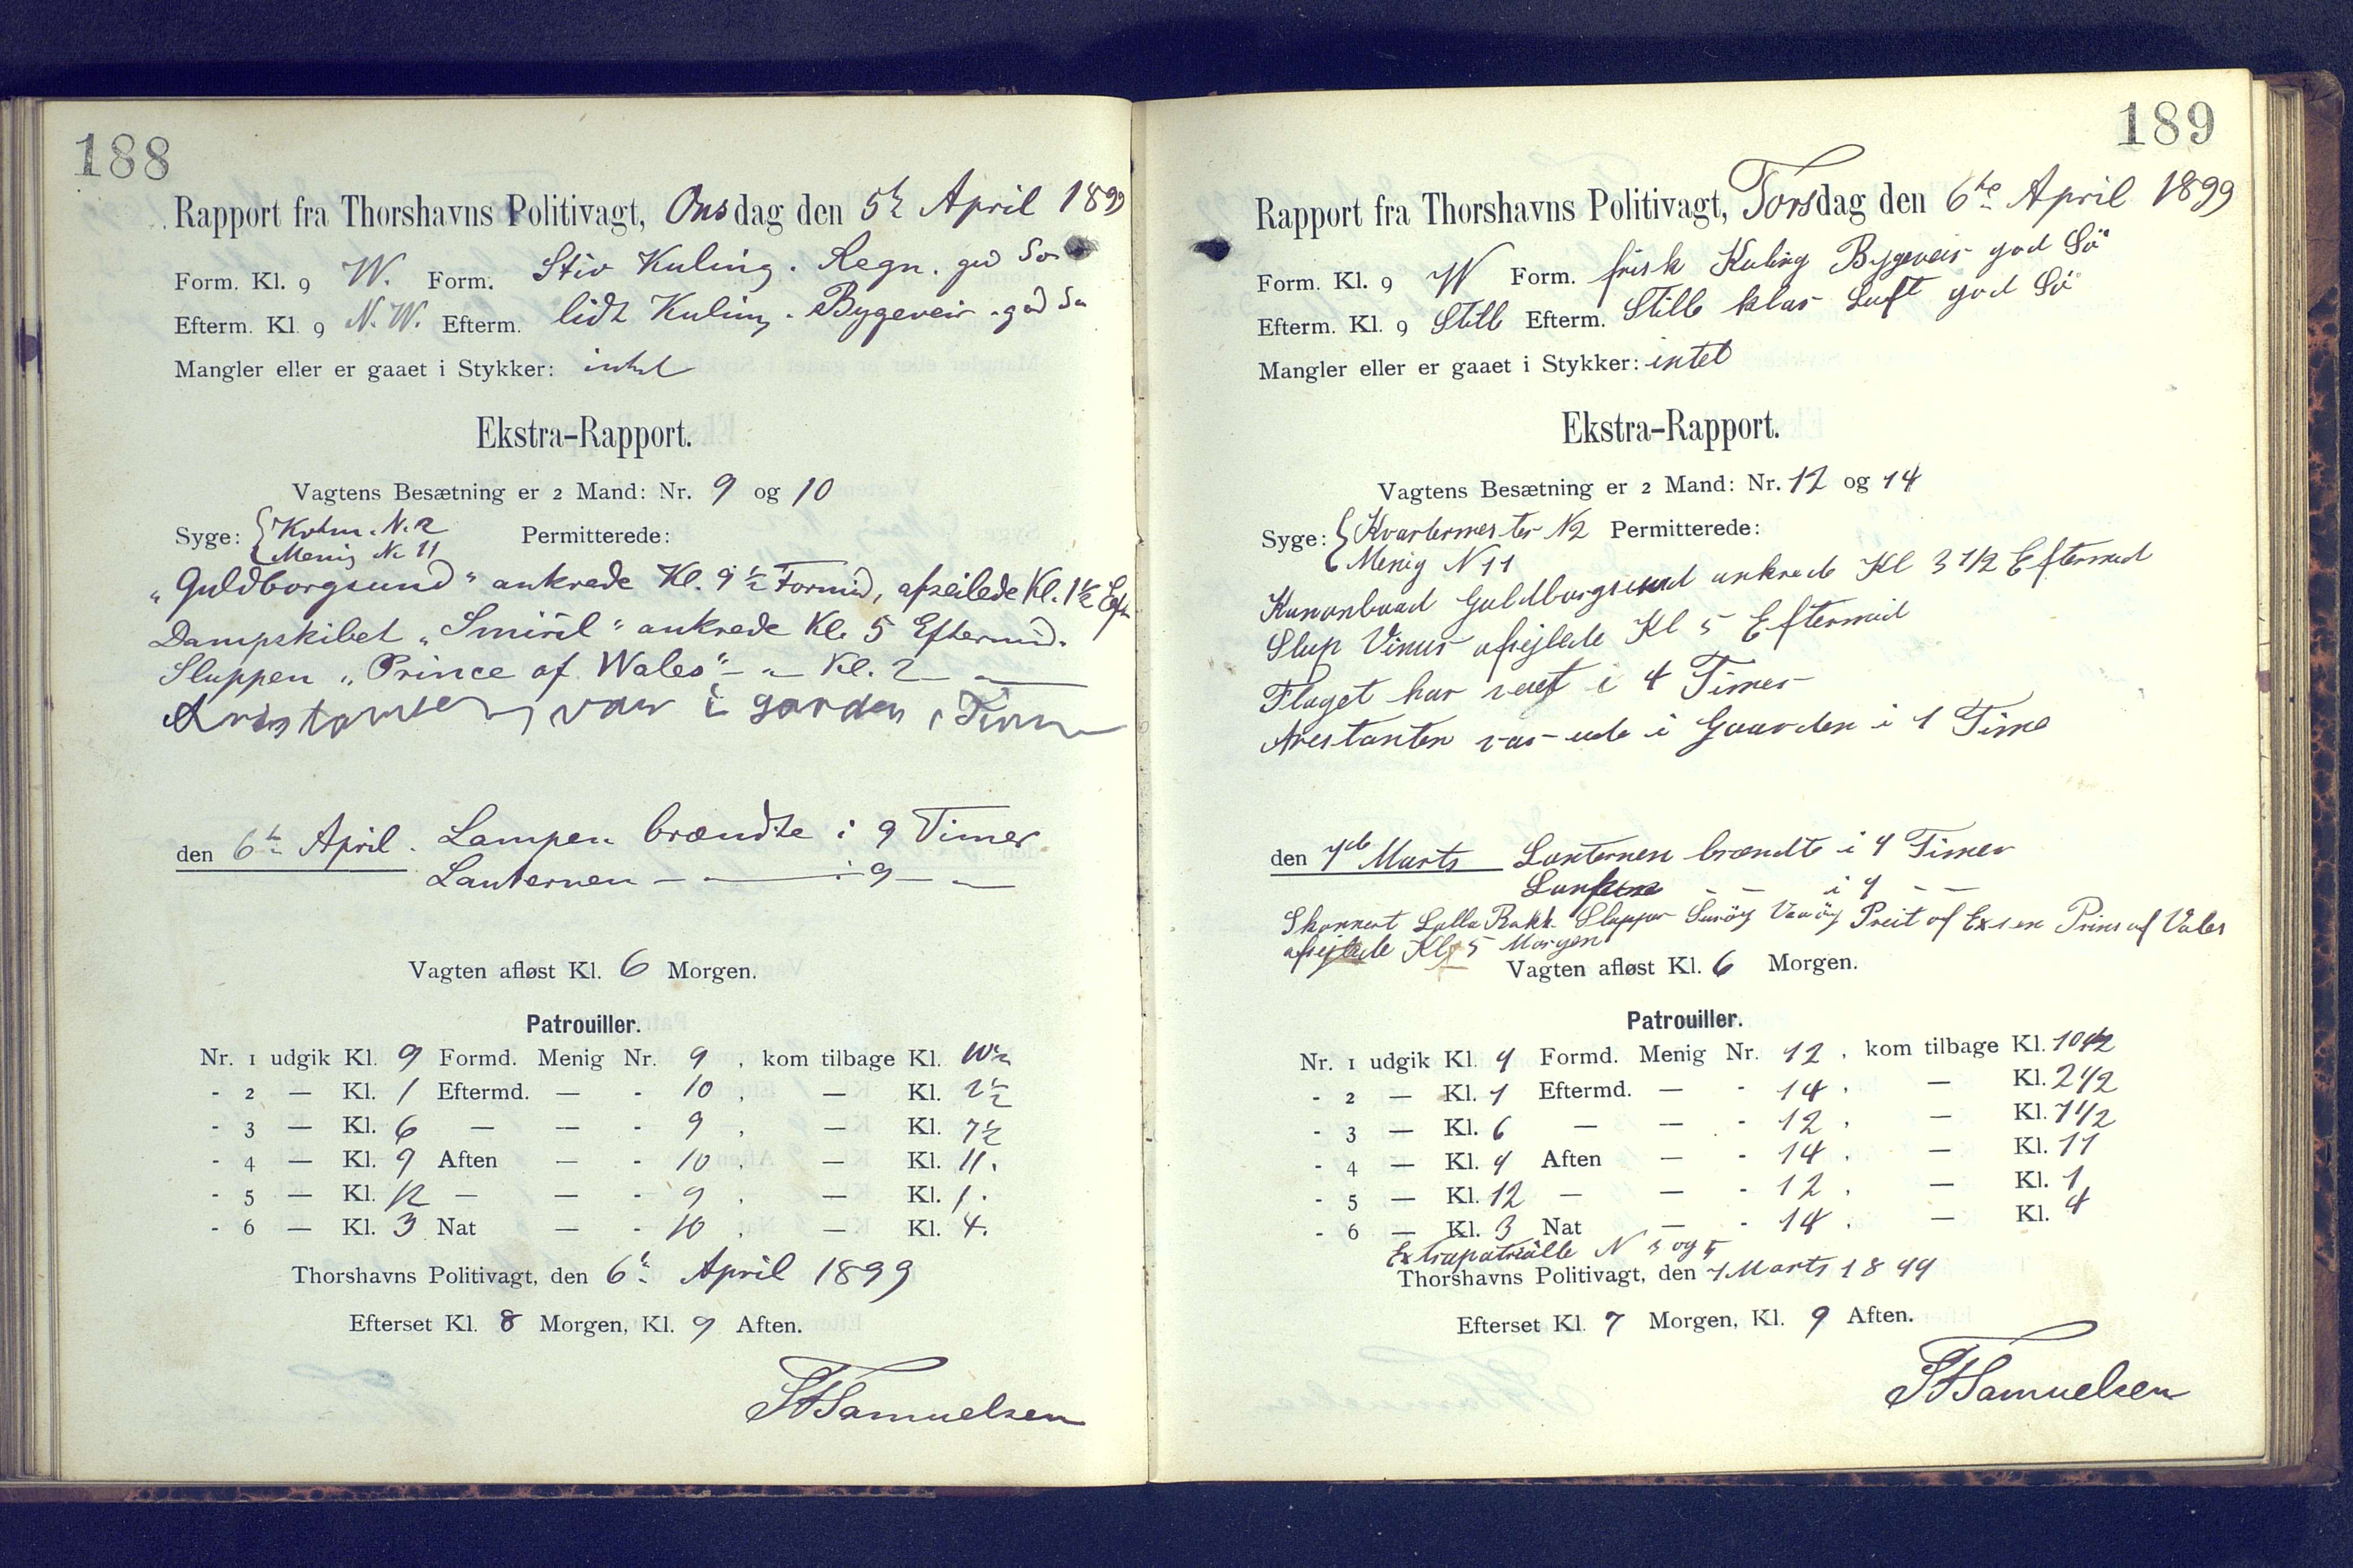 188
Rapport fra Thorshavns Politivagt, Onsdag den 5t April 1899
Form. Kl. 9 W. Form. Stiv Kuling. Regn. god Sø
Efterm. Kl. 9 N. W. Efterm. lidt Kuling. Bygeveir. god Sø
Mangler eller er gaaet i Stykker: intet
Ekstra-Rapport.
Vagtens Besætning er 2 Mand: Nr. 9 og 10
Syge: { Kvtm. N. 2 Permitterede:
Menig N. 11
„Guldborgsund“ ankrede Kl. 9 ½ Formid, afseilede Kl. 1 ½ Eftm
Dampskibet „Smiril“ ankrede Kl. 5 Eftermid.
Sluppen „Prince of Wales“ - „ - Kl. 2 - „ -
var i gaarden 1 Time
den 6te April. Lampen brændte i 9 Timer
Lanternen - „ - i 9 - „ -
Vagten afløst Kl. 6 Morgen.
Patrouiller.
Nr. 1 udgik Kl. 9 Formd. Menig Nr. 9 , kom tilbage Kl. 10½
- 2 — Kl. 1 Eftermd. — - 10 , — Kl. 2½
- 3 — Kl. 6 — — - 9 , — Kl. 7½
- 4 — Kl. 9 Aften — - 10 , — Kl. 11.
- 5 — Kl. 12 — — - 9 , — Kl. 1.
- 6 — Kl. 3 Nat — - 10 , — Kl. 4.
Thorshavns Politivagt, den 6t April 1899
Efterset Kl. 8 Morgen, Kl. 9 Aften.
Samuelsen
189
Rapport fra Thorshavns Politivagt, Torsdag den 6te April 1899
Form. Kl. 9 W Form. frisk Kuling Bygeveir god Sö
Efterm. Kl. 9 Still Efterm. Stille klar Luft god Sö
Mangler eller er gaaet i Stykker: intet
Ekstra-Rapport.
Vagtens Besætning er 2 Mand: Nr. 12 og 14
Syge: { Kvartermester N2 Permitterede:
Menig N 11
Kanonbaad Guldborgsund ankrede Kl 3 1/2 Eftermid
Slup Vinus afsejlede Kl 5 Eftermid
Flaget har veiet i 4 Timer
Arestanten var ude i Gaarden i 1 Time
den 7de Marts Lanternen brændte i 9 Timer
Lampene — — i 9 — —
Skonnert Lalla Rokk Slupper Suröy Vaaöy Preit of Exsen Prins af Vales
afsejlede Kl 5 Morgen
Vagten afløst Kl. 6 Morgen.
Patrouiller.
Nr. 1 udgik Kl. 9 Formd. Menig Nr. 12 , kom tilbage Kl. 10 1/2
- 2 — Kl. 1 Eftermd. — - 14 , — Kl. 2 1/2
- 3 — Kl. 6 — — - 12 , — Kl. 7 1/2
- 4 — Kl. 9 Aften — - 14 , — Kl. 11
- 5 — Kl. 12 — — - 12 , — Kl. 1
- 6 — Kl. 3 Nat — - 14 , — Kl. 4
Extrapatriulle N 3 og 5
Thorshavns Politivagt, den 7 Marts 1899
Efterset Kl. 7 Morgen, Kl. 9 Aften.
Samuelsen